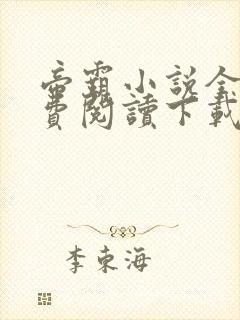 帝霸小說全
費閱讀下載
李東海